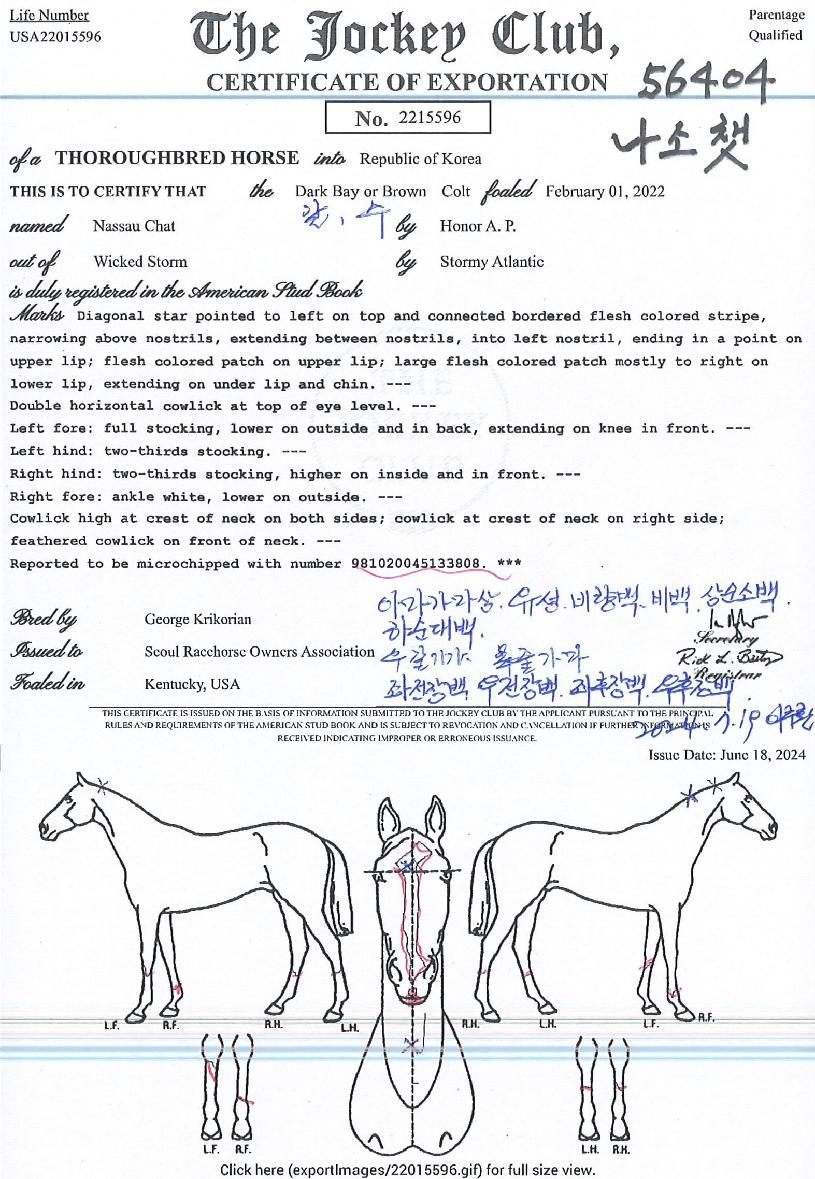 Life Number
USA22015596
The Jockey Club,
Parentage
Qualified
CERTIFICATE OF EXPORTATION
56404
No. 2215596
나소챗
of a THOROUGHBRED HORSE into Republic of Korea
THIS IS TO CERTIFY THAT the Dark Bay or Brown Colt foaled February 01, 2022
갈, 수
named Nassau Chat by Honor A. P.
out of Wicked Storm by Stormy Atlantic
is duly registered in the American Stud Book
Marks Diagonal star pointed to left on top and connected bordered flesh colored stripe,
narrowing above nostrils, extending between nostrils, into left nostril, ending in a point on
upper lip; flesh colored patch on upper lip; large flesh colored patch mostly to right on
lower lip, extending on under lip and chin. ---
Double horizontal cowlick at top of eye level. ---
Left fore: full stocking, lower on outside and in back, extending on knee in front. ---
Left hind: two-thirds stocking. ---
Right hind: two-thirds stocking, higher on inside and in front. ---
Right fore: ankle white, lower on outside. ---
Cowlick high at crest of neck on both sides; cowlick at crest of neck on right side;
feathered cowlick on front of neck. ---
Reported to be microchipped with number 981020045133808. ***
유성. 비량백. 비백. 상순소백.
Bred by George Krikorian
하순대백.
Secretary
Issued to Seoul Racehorse Owners Association
Registrar
Foaled in Kentucky, USA
좌전장백 우전장백. 좌후장백. 우후장백
THIS CERTIFICATE IS ISSUED ON THE BASIS OF INFORMATION SUBMITTED TO THE JOCKEY CLUB BY THE APPLICANT PURSUANT TO THE PRINCIPAL
RULES AND REQUIREMENTS OF THE AMERICAN STUD BOOK AND IS SUBJECT TO REVOCATION AND CANCELLATION IF FURTHER INFORMATION IS
2024. 7. 19
RECEIVED INDICATING IMPROPER OR ERRONEOUS ISSUANCE.
Issue Date: June 18, 2024
L.F. R.F. R.H. L.H. R.H. L.H. L.F. R.F.
L.F. R.F. L.H. R.H.
Click here (exportImages/22015596.gif) for full size view.